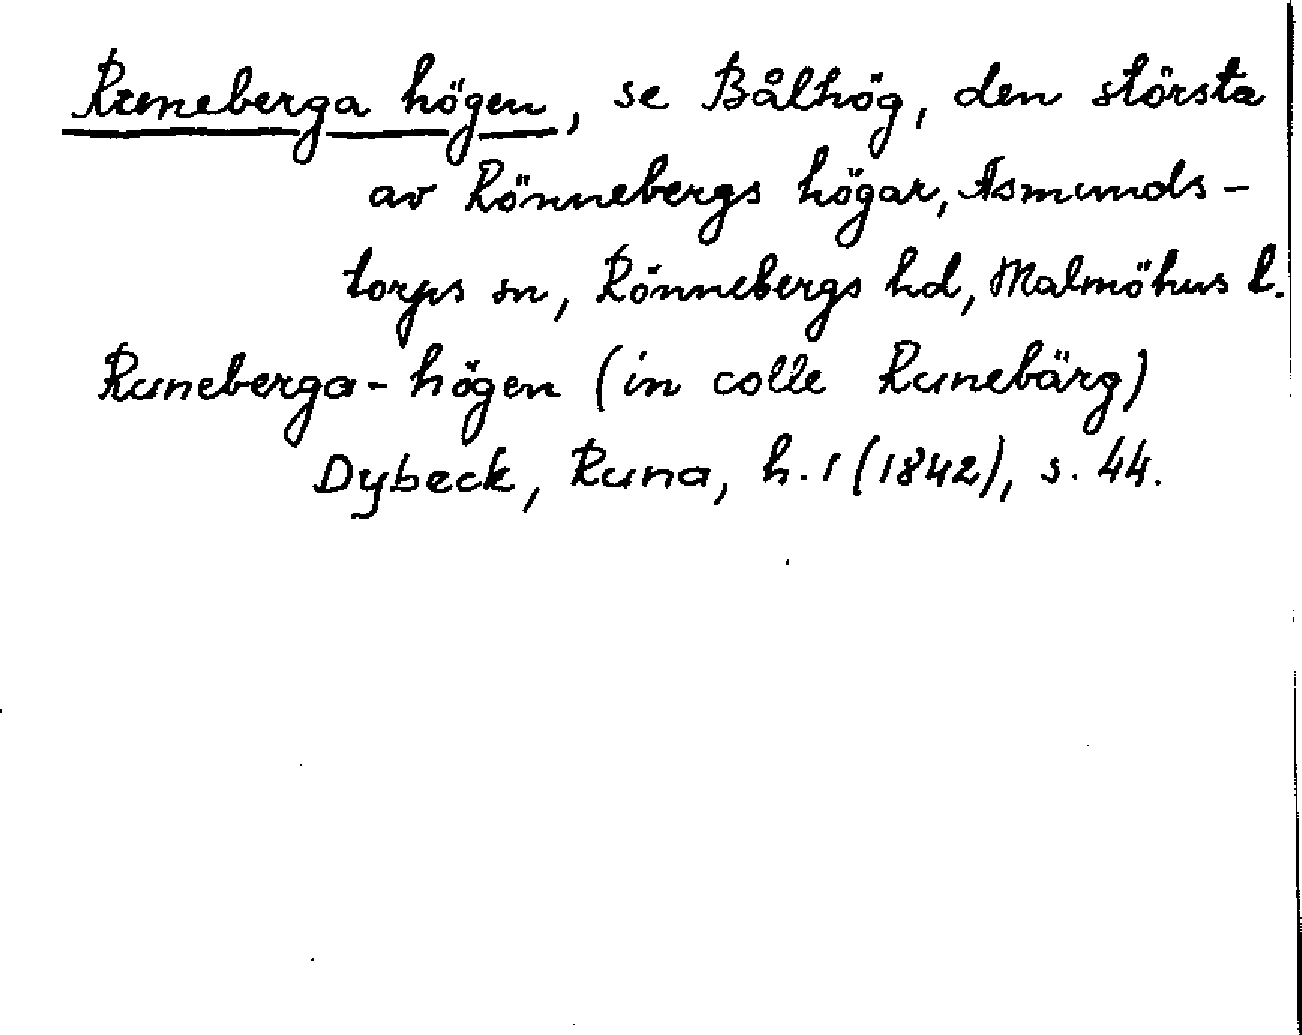 Runeberga högen, se Bålhög, den största
av Rönnebergs högar, Asmunds-
torps sn, Rönnebergs hd, Malmöhus l.
Runeberga-högen (in colle Runebärg)
Dybeck, Runa, h. 1 (1842), s. 44.